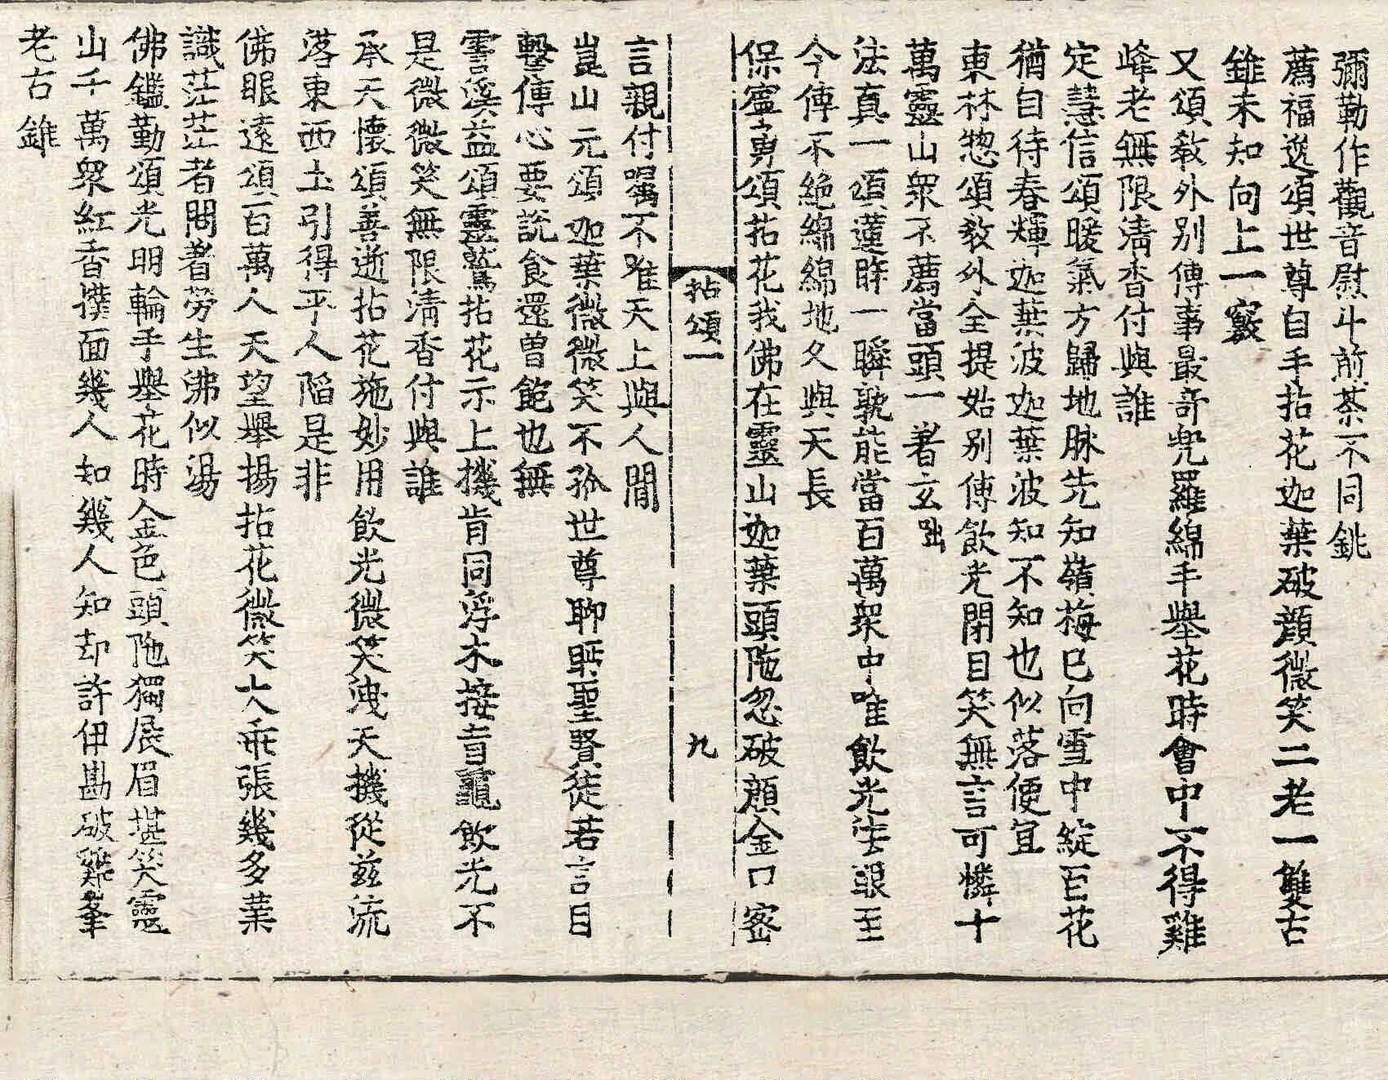 彌勒作觀音慰斗煎茶不同銚
薦福逸頌世尊自手拈花迦葉破顏微笑二老一雙古
錐未知向上一竅
又頌敎外別傳事最竒兠羅綿手擧花時會中不得雞
峰老無限淸香付與誰
定慧信頌暖氣方歸地脉先知嶺梅已向雪中綻百花
猶自待春輝迦葉波迦葉波知不知也似落便冝
東林惣頌敎外全提始別傳飮光閉目笑無言可憐十
萬靈山衆不薦當頭一著玄
法真一頌蓮眸一瞬孰能當百萬衆中唯飮光法眼至
今傳不絶綿綿地久與天長
保寧勇頌拈花我佛在靈山迦葉頭陁忽破顔金口宻
拈頌一 九
言親付囑不唯天上與人間
崑山元頌迦葉微微笑不孤世尊聊㖒聖賢徒若言目
擊傳心要說食還曾飽也無
雲溪益頌靈鷲拈花示上機肯同浮木接盲龜飮光不
是微微笑無限淸香付與誰
承天懷頌善逝拈花施妙用飮光微笑洩天機從玆流
落東西土引得平人陷是非
佛眼遠頌百萬人天望舉揚拈花微笑大乖張幾多業
識茫茫者問著勞生沸似湯
佛鑑勤頌光明輪手擧花時金色頭陁獨展眉堪笑靈
山千萬衆紅香㩧面幾人知幾人知却許伊勘破雞峯
老古錐